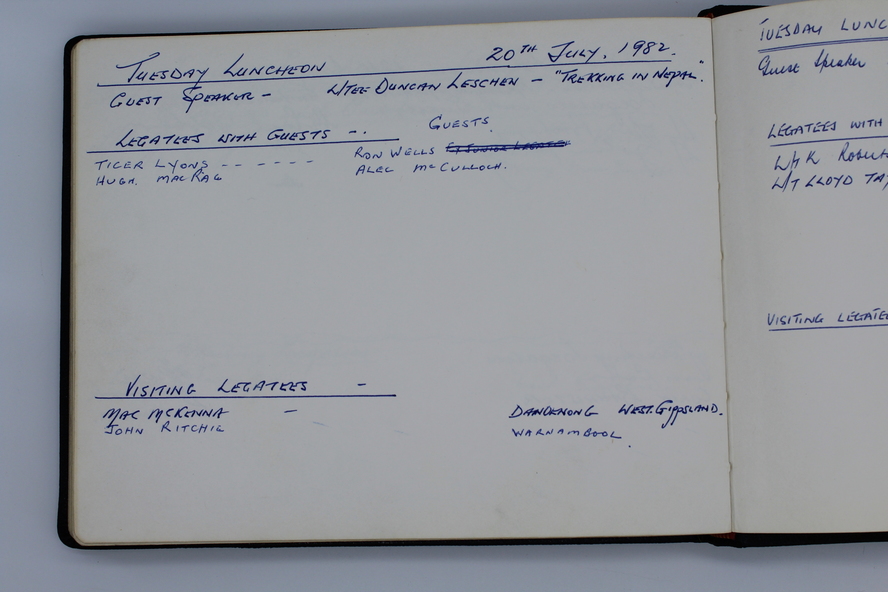 TUESDAY LUNCHEON 20TH JULY, 1982.
GUEST SPEAKER - L/TEE DUNCAN LESCHEN - "TREKKING IN NEPAL".
LEGATEES WITH GUESTS -. GUESTS.
TIGER LYONS - - - - - - RON WELLS EX JUNIOR LEGATEE
HUGH. MACRAE ALEC McCULLOCH.
VISITING LEGATEES -
MAC McKENNA - DANDENONG WEST.GIPPSLAND.
JOHN RITCHIE WARNAMBOOL.
TUESDAY LUNC
Guest Speaker
LEGATEES WITH
L/H K Robert
L/T LLOYD TA
VISITING LEGATEE